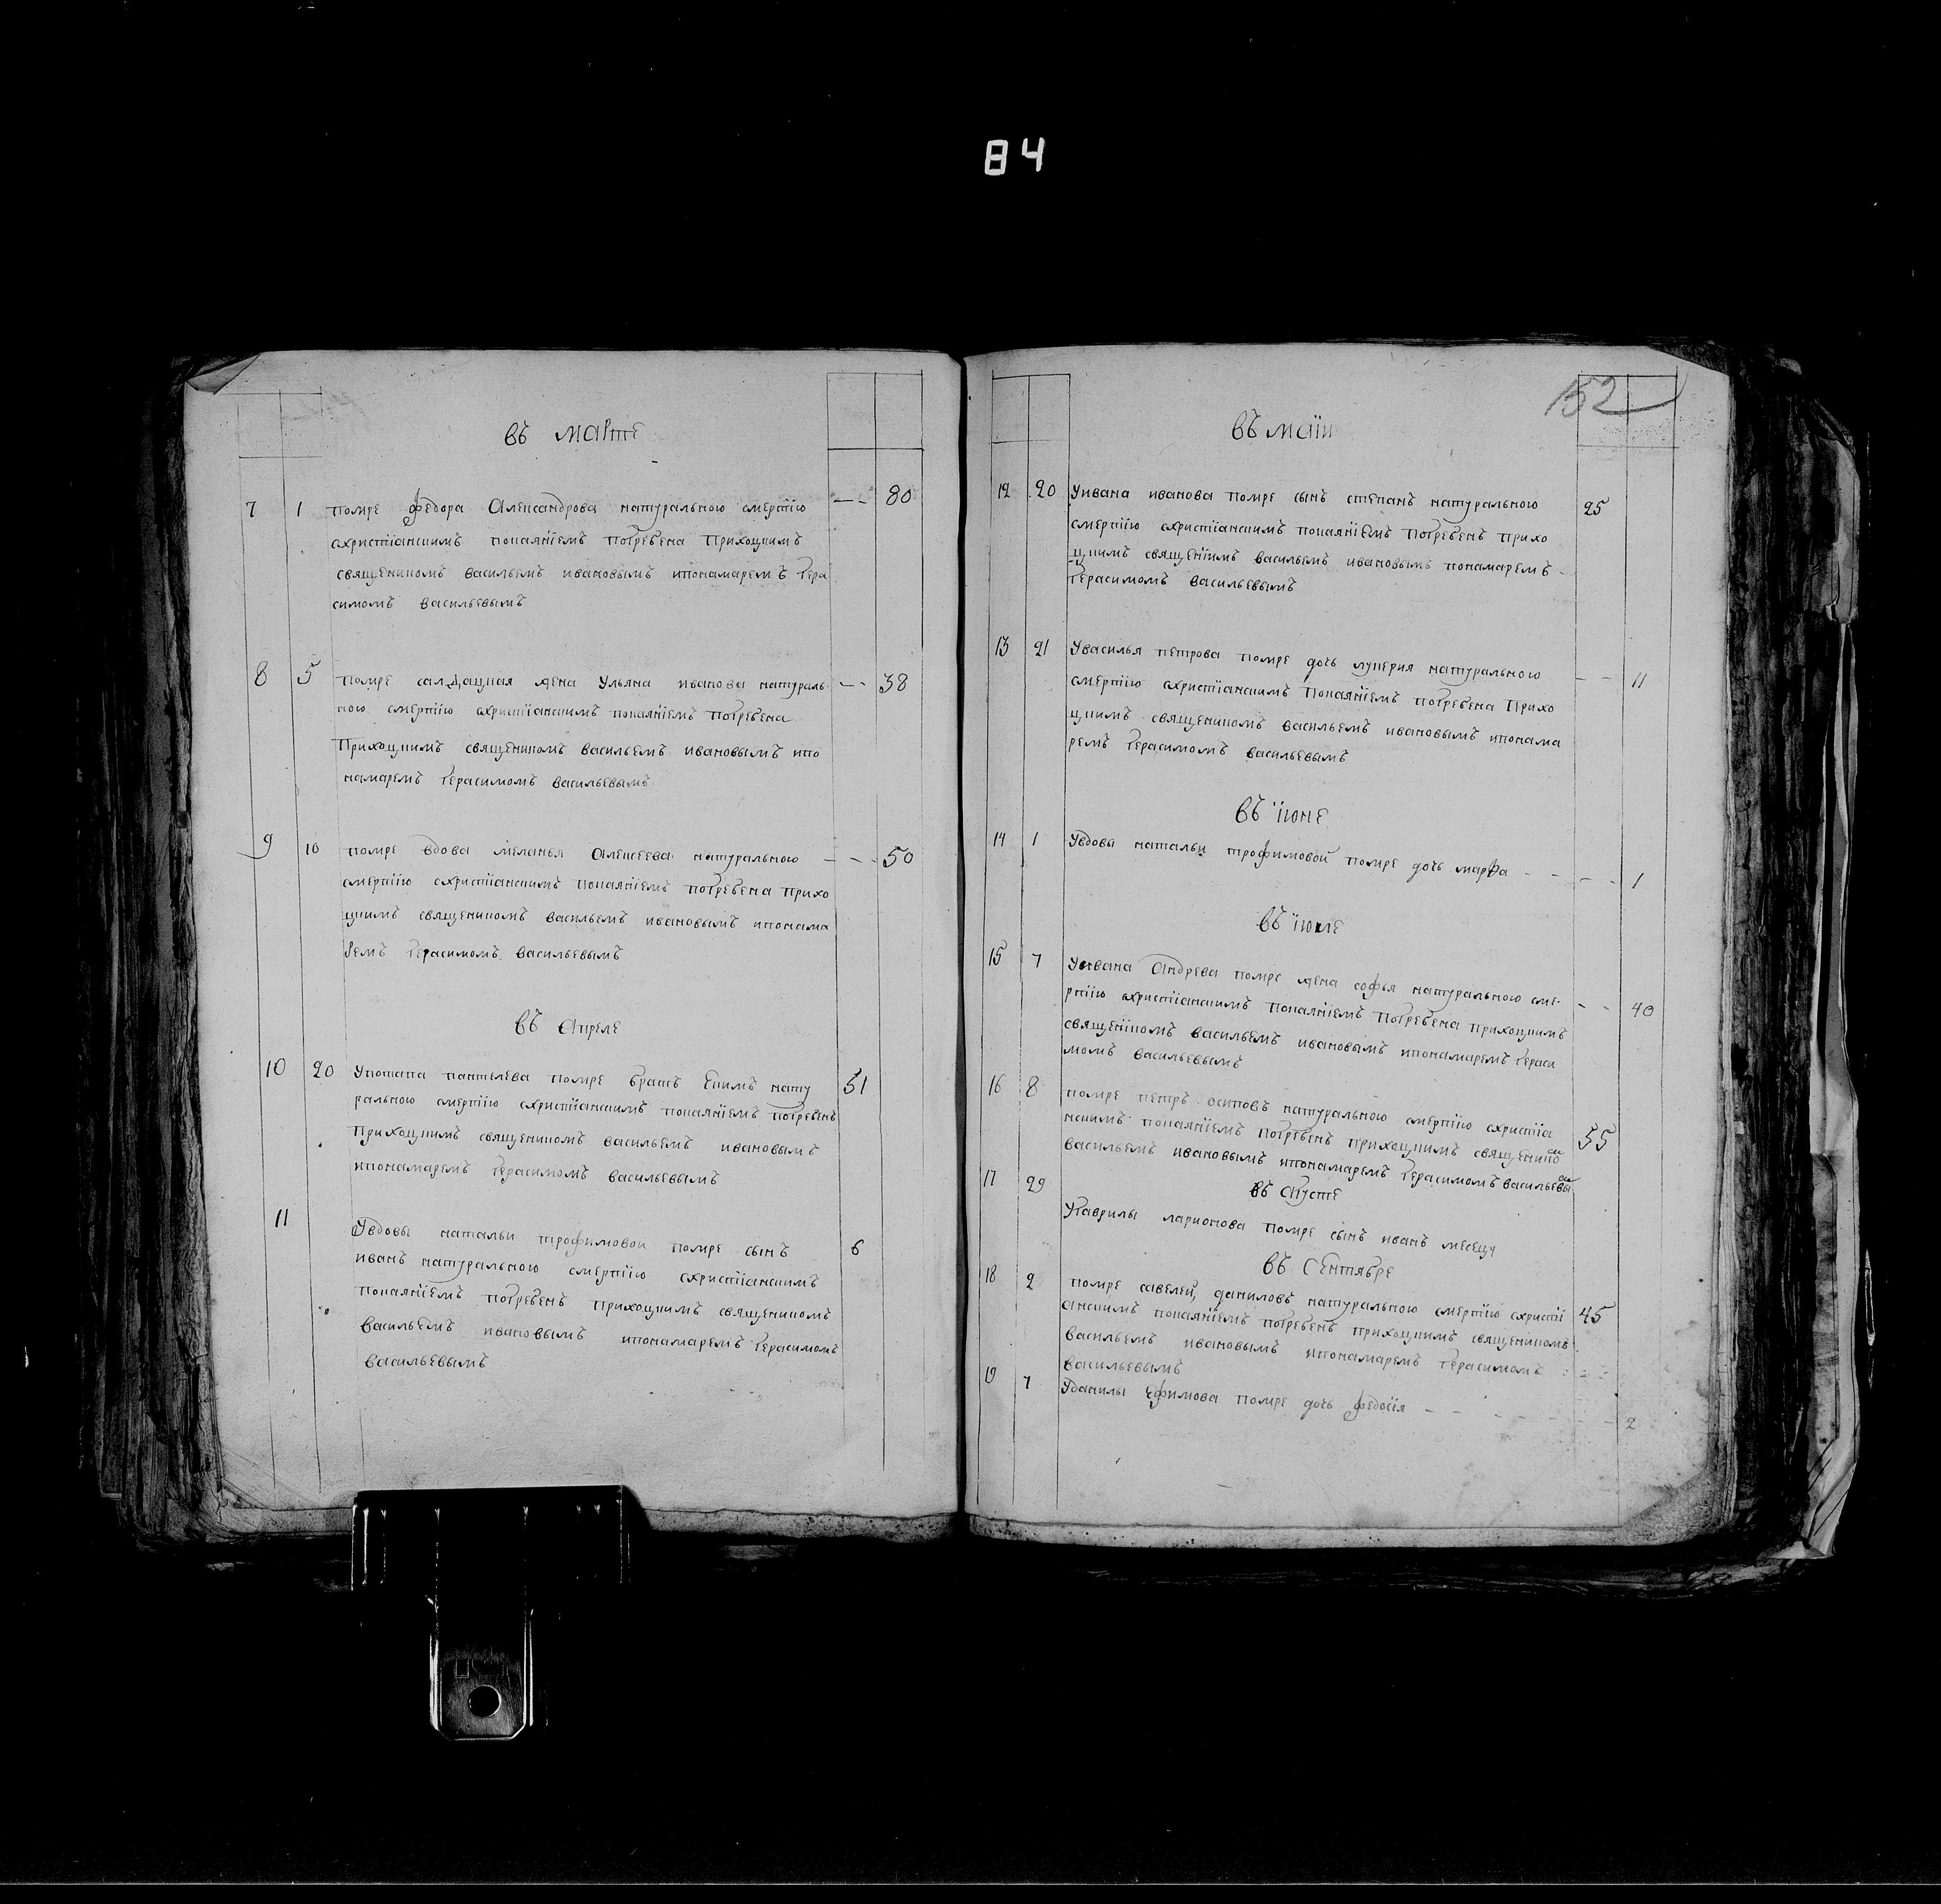 84
въ марте
7 1 помре федора Александрова натуральною смертїю -- 80
схристїанскимъ покаянїемъ погребена приходцкимъ
священикомъ васильемъ ивановымъ ипонамаремъ гера
симомъ васильевымъ
8 5 помре салдацкая жена Ульяна иванова натураль- -- 38
ною смертїю схристїанскимъ покаянїемъ погребена
Приходцкимъ священикомъ васильемъ ивановымъ ипо
намаремъ герасимомъ васильевымъ
9 10 помре вдова меланья Алексеева натуральною --- 50
смертїю схристїанскимъ покаянїемъ погребена прихо
цкимъ священикомъ васильемъ ивановымъ ипонама
ремъ герасимомъ васильевымъ
въ Апреле
10 20 Употапа пантелева помре братъ Екимъ нату 51
ральною смертїю схристїанскимъ покаянїемъ погребенъ
Приходцкимъ священикомъ васильемъ ивановымъ
ипонамаремъ герасимомъ васильевымъ
11 Увдовы натальи трофимовои помре сынъ 6
иванъ натуральною смертїю схристїанскимъ
покаянїемъ погребенъ приходцкимъ священикомъ
васильемъ ивановымъ ипонамаремъ герасимомъ
васильевымъ
152
въ маїи
12 20 Уивана иванова помре сынъ степанъ натуральною 25
смертїю схристїанскимъ покаянїемъ погребенъ прихо
цкимъ священїимъ васильемъ ивановымъ понамаремъ -
герасимомъ васильевымъ
13 21 Увасилья петрова помре дочь лукерия натуральною -- 11
смертїю схристїанскимъ покаянїемъ погребена прихо
цкимъ священикомъ васильемъ ивановымъ ипонама
ремъ герасимомъ васильевымъ
въ їюне
14 1 Увдовы натальи трофимовой помре дочь марфа ---- 1
въ їюле
15 7 Уивана Андрева помре жена софья натуральною сме- -- 40
ртїю схристїанскимъ покаянїемъ погребена приходцкимъ
священїкомъ васильемъ ивановымъ ипонамаремъ гераси
момъ васильевымъ
16 8 помре петръ осиповъ натуральною смертїю схристїа 55
нскимъ покаянїемъ погребенъ приходцкимъ священико
васильемъ ивановымъ ипонамаремъ герасимомъ васильевы
въ Августе
17 29 Угаврилы ларионова помре сынъ иванъ месецу
въ Сентябре
18 2 помре савелей даниловъ натуральною смертїю схристї 45
анскимъ покаянїемъ погребенъ приходцкимъ священикомъ
васильемъ ивановымъ ипонамаремъ герасимомъ
васильевымъ
19 7 Уданилы Ефимова помре дочь федосїя ------ 2